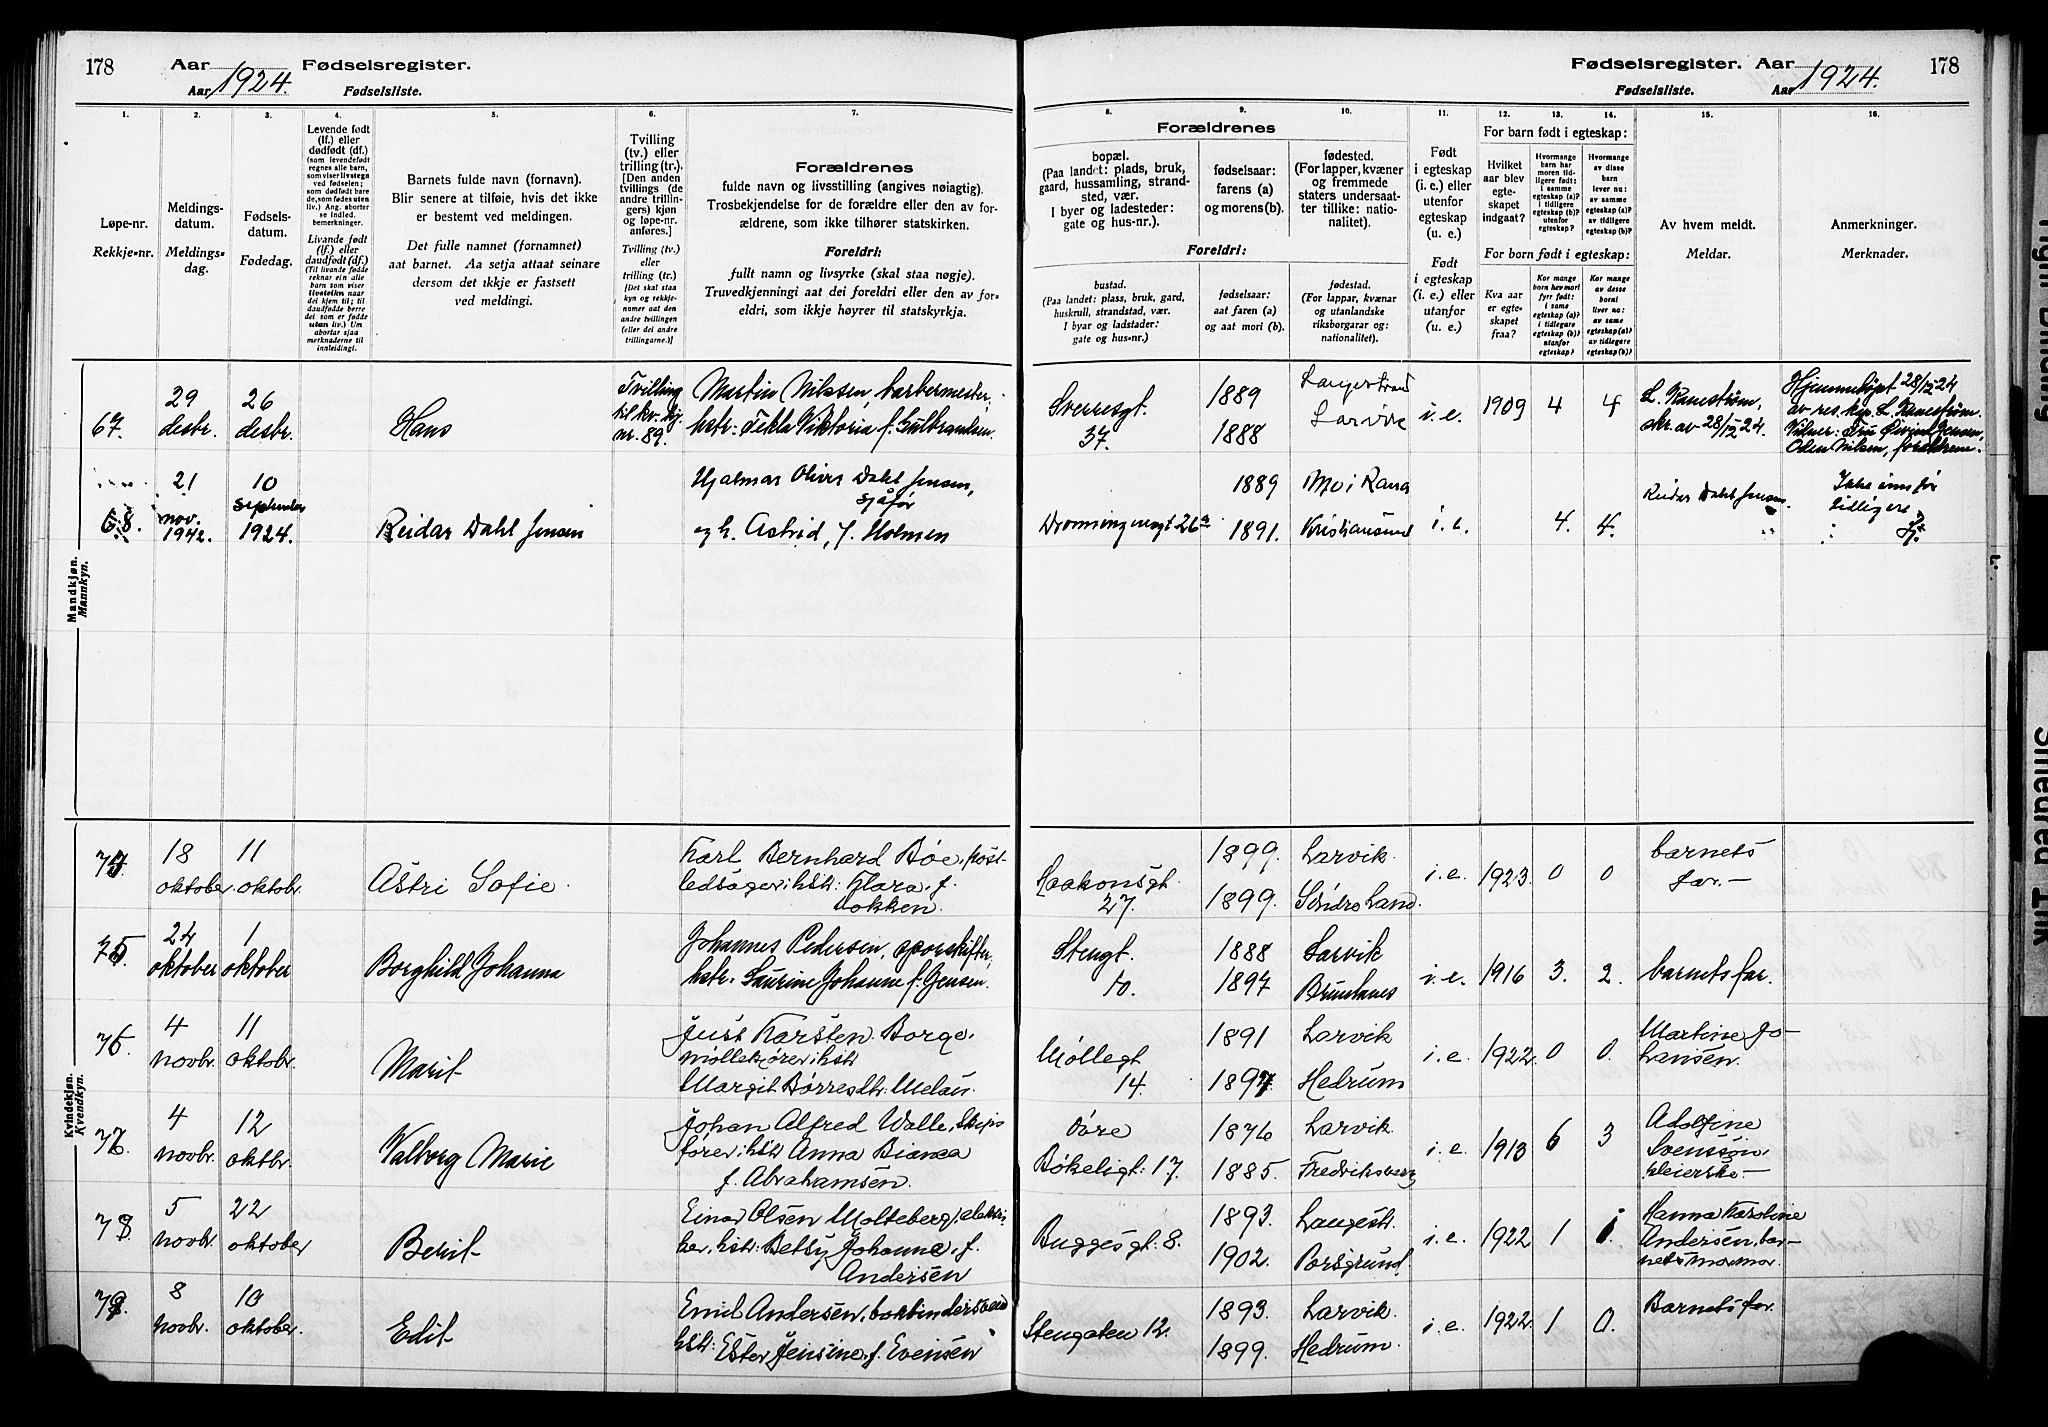 178 Aar 1924. Fødselsregister.
Aar Fødselsliste.
Fødselsregister. Aar 1924. 178
Fødselsliste. Aar
1. 2. 3. 4. 5. 6. 7.
Løpe-nr.
Rekkje-nr.
Meldings-
datum.
Meldings-
dag.
Fødsels-
datum.
Fødedag.
Levende født
(lf.) eller
dødfødt (df.)
(som levendefødt
regnes alle barn,
som viser livstegn
ved fødselen;
som dødfødt bare
de, som fødes uten
liv.) Ang. aborter
se indled.
bemerkninger.
Livande født
(lf.) eller
daudfødt (df.)
(Til livande fødde
reknar ein alle
born som viser
livsteikn naar
dei kjem til; til
daudfødde berre
dei som er fødde
utan liv.) Um
abortar sjaa
merknaderne til
innleidingi.
Barnets fulde navn (fornavn).
Blir senere at tilføie, hvis det ikke
er bestemt ved meldingen.
Det fulle namnet (fornamnet)
aat barnet. Aa setja attaat seinare
dersom det ikkje er fastsett
ved meldingi.
Tvilling
(tv.) eller
trilling (tr.).
[Den anden
tvillings (de
andre trillin-
gers) kjøn
og løpe-nr.
anføres.]
Tvilling (tv.)
eller
trilling (tr.)
[Det skal staa
kyn og rekkje-
numer aat den
andre tvillingen
(eller dei andre
trillingarne.)]
Forældrenes
fulde navn og livsstilling (angives nøiagtig).
Trosbekjendelse for de forældre eller den av for-
ældrene, som ikke tilhører statskirken.
Foreldri:
fullt namn og livsyrke (skal staa nøgje).
Truvedkjenningi aat dei foreldri eller den av for-
eldri, som ikkje høyrer til statskyrkja.
8. 9. 10. 11. 12. 13. 14. 15. 16.
Forældrenes
bopæl.
(Paa landet: plads, bruk,
gaard, hussamling, strand-
sted, vær.
I byer og ladesteder:
gate og hus-nr.).
fødselsaar:
farens (a)
og morens (b).
fødested.
(For lapper, kvæner
og fremmede
staters undersaat-
ter tillike: natio-
nalitet).
Foreldri:
bustad.
(Paa landet: plass, bruk, gard,
husknull, strandstad, vær.
I byar og ladstader:
gate og hus-nr.)
fødselsaar:
aat faren (a)
og aat mori (b).
fødestad.
(For lappar, kvænar
og utanlandske
riksborgarar og:
nationalitet).
Født
i egteskap
(i. e.) eller
utenfor
egteskap
(u. e.)
Født
i egteskap
(i. e.) eller
utanfor
(u. e.)
For barn født i egteskap:
Hvilket
aar blev
egte-
skapet
indgaat?
Hvormange
barn har
moren tid-
ligere født:
i samme
egteskap (a)?
i tidligere
egteskap (b)?
utenfor
egteskap?
Hvormange
av disse
barn
lever nu:
av samme
egteskap (a)?
av tidligere
egteskap (b)?
For born født i egteskap:
Kva aar
er egte-
skapet
fraa?
Kor mange
born hev mori
fyrr født:
i same
egteskap (a)?
i tidlegare
egteskap (b)?
utanfor
egteskap?
Kor mange
av desse
borni
liver no:
av same
egteskap (a)?
av tidlegare
egteskap (b)?
Av hvem meldt.
Meldar.
Anmerkninger.
Merknader.
Mandkjøn.
Mannkyn.
67. 29 desbr. 26 desbr. Hans
Tvilling
til kv. kj.
nr. 89.
Martin Nilssen, barbermester,
hstr: Tekla Viktoria f. Gulbrandsen.
Sverresgt. 37. 1889 1888 Langestrand Larvik i. e. 1909 4 4
L. Ranestrøm,
skr. av 28/12 24.
Hjemmedøpt 28/12 24
av res. kap. L. Ranestrøm.
Vidner: Fru Øivind Jensen,
Oden Nilsen, forældrene.
68. 21 nov. 1942. 10 September 1924. Reidar Dahl Jensen
Hjalmar Oliver Dahl Jensen,
sjåfør
og h. Astrid, f. Holmen
Dronningensgt 26a 1889 1891. Mo i Rana Kristiansund i. e. 4. 4.
Reidar Dahl Jensen
Ikke innfør
tidligere
Kvindekjøn.
Kvendkyn.
74. 18 oktober. 11 oktobr. Astri Sofie.
Karl Bernhard Bøe, post-
ledsager, hstr: Klara, f.
Lokken.
Haakonsgt. 27. 1899. 1899. Larvik. Söndre Land. i. e. 1923. 0 0
barnets
far.-
75. 24 oktober 1 oktober Borghild Johanna
Johannes Pedersen, sporskifter,
hstr. Laurine Johanne f. Jensen.
Stengt. 10. 1888 1897 Larvik Brunlanes i. e. 1916 3. 2. barnets far.
76. 4 novbr. 11 oktobr. Marit
Just Karsten Borge,
möllekjører, hstr
Margit Børresdtr. Melau.
Møllegt. 14. 1891 1897 Larvik Hedrum i. e. 1922. 0 0.
Martine Jo-
hansen.
77. 4 novbr. 12 oktbr. Valborg Marie
Johan Alfred Walle, Skips
fører, hstr Anna Bianca
f. Abrahamsen.
Øvre
Bökeligt: 17. 1876 1885. Larvik. Fredriksværn i. e. 1913 6 3
Adolfine
Svensson,
pleierske-
78. 5 novbr. 22 oktober Berit
Einar Olsen Molteberg, elektri-
ker, hstr: Betsy Johanne, f.
Andersen
Buggesgt: 8. 1893. 1902. Langestr. Porsgrund. i. e. 1922 1 1.
Hanna Karoline
Andersen, bar-
nets mormor.
79. 8 novbr. 10 oktober. Edit
Emil Andersen, bokbindersvend
hstr: Ester Jensine, f. Evensen
Stengaten 12. 1893. 1899. Larvik. Hedrum. i. e. 1922. 1 0. Barnets far.